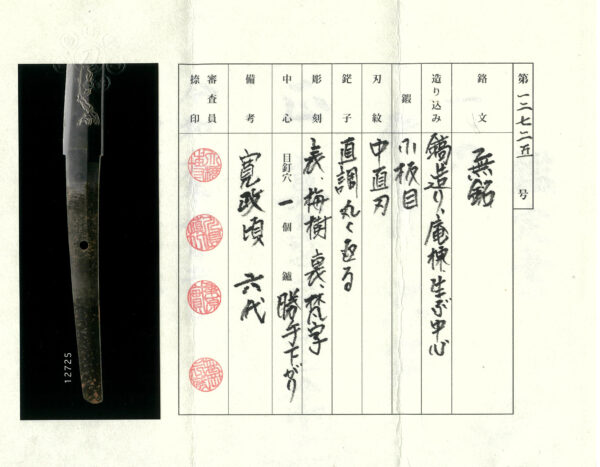 第一二七二五号
銘文 無銘
造り込み 鎬造り、庵棟、生ぶ中心
鍛 小板目
刃紋 中直刃
鋩子 直調丸く返る
彫刻 表、梅樹 裏、梵字
中心 目釘穴 一個 鑢 勝手下がり
備考 寛政頃 六代
審査員捺印
12725